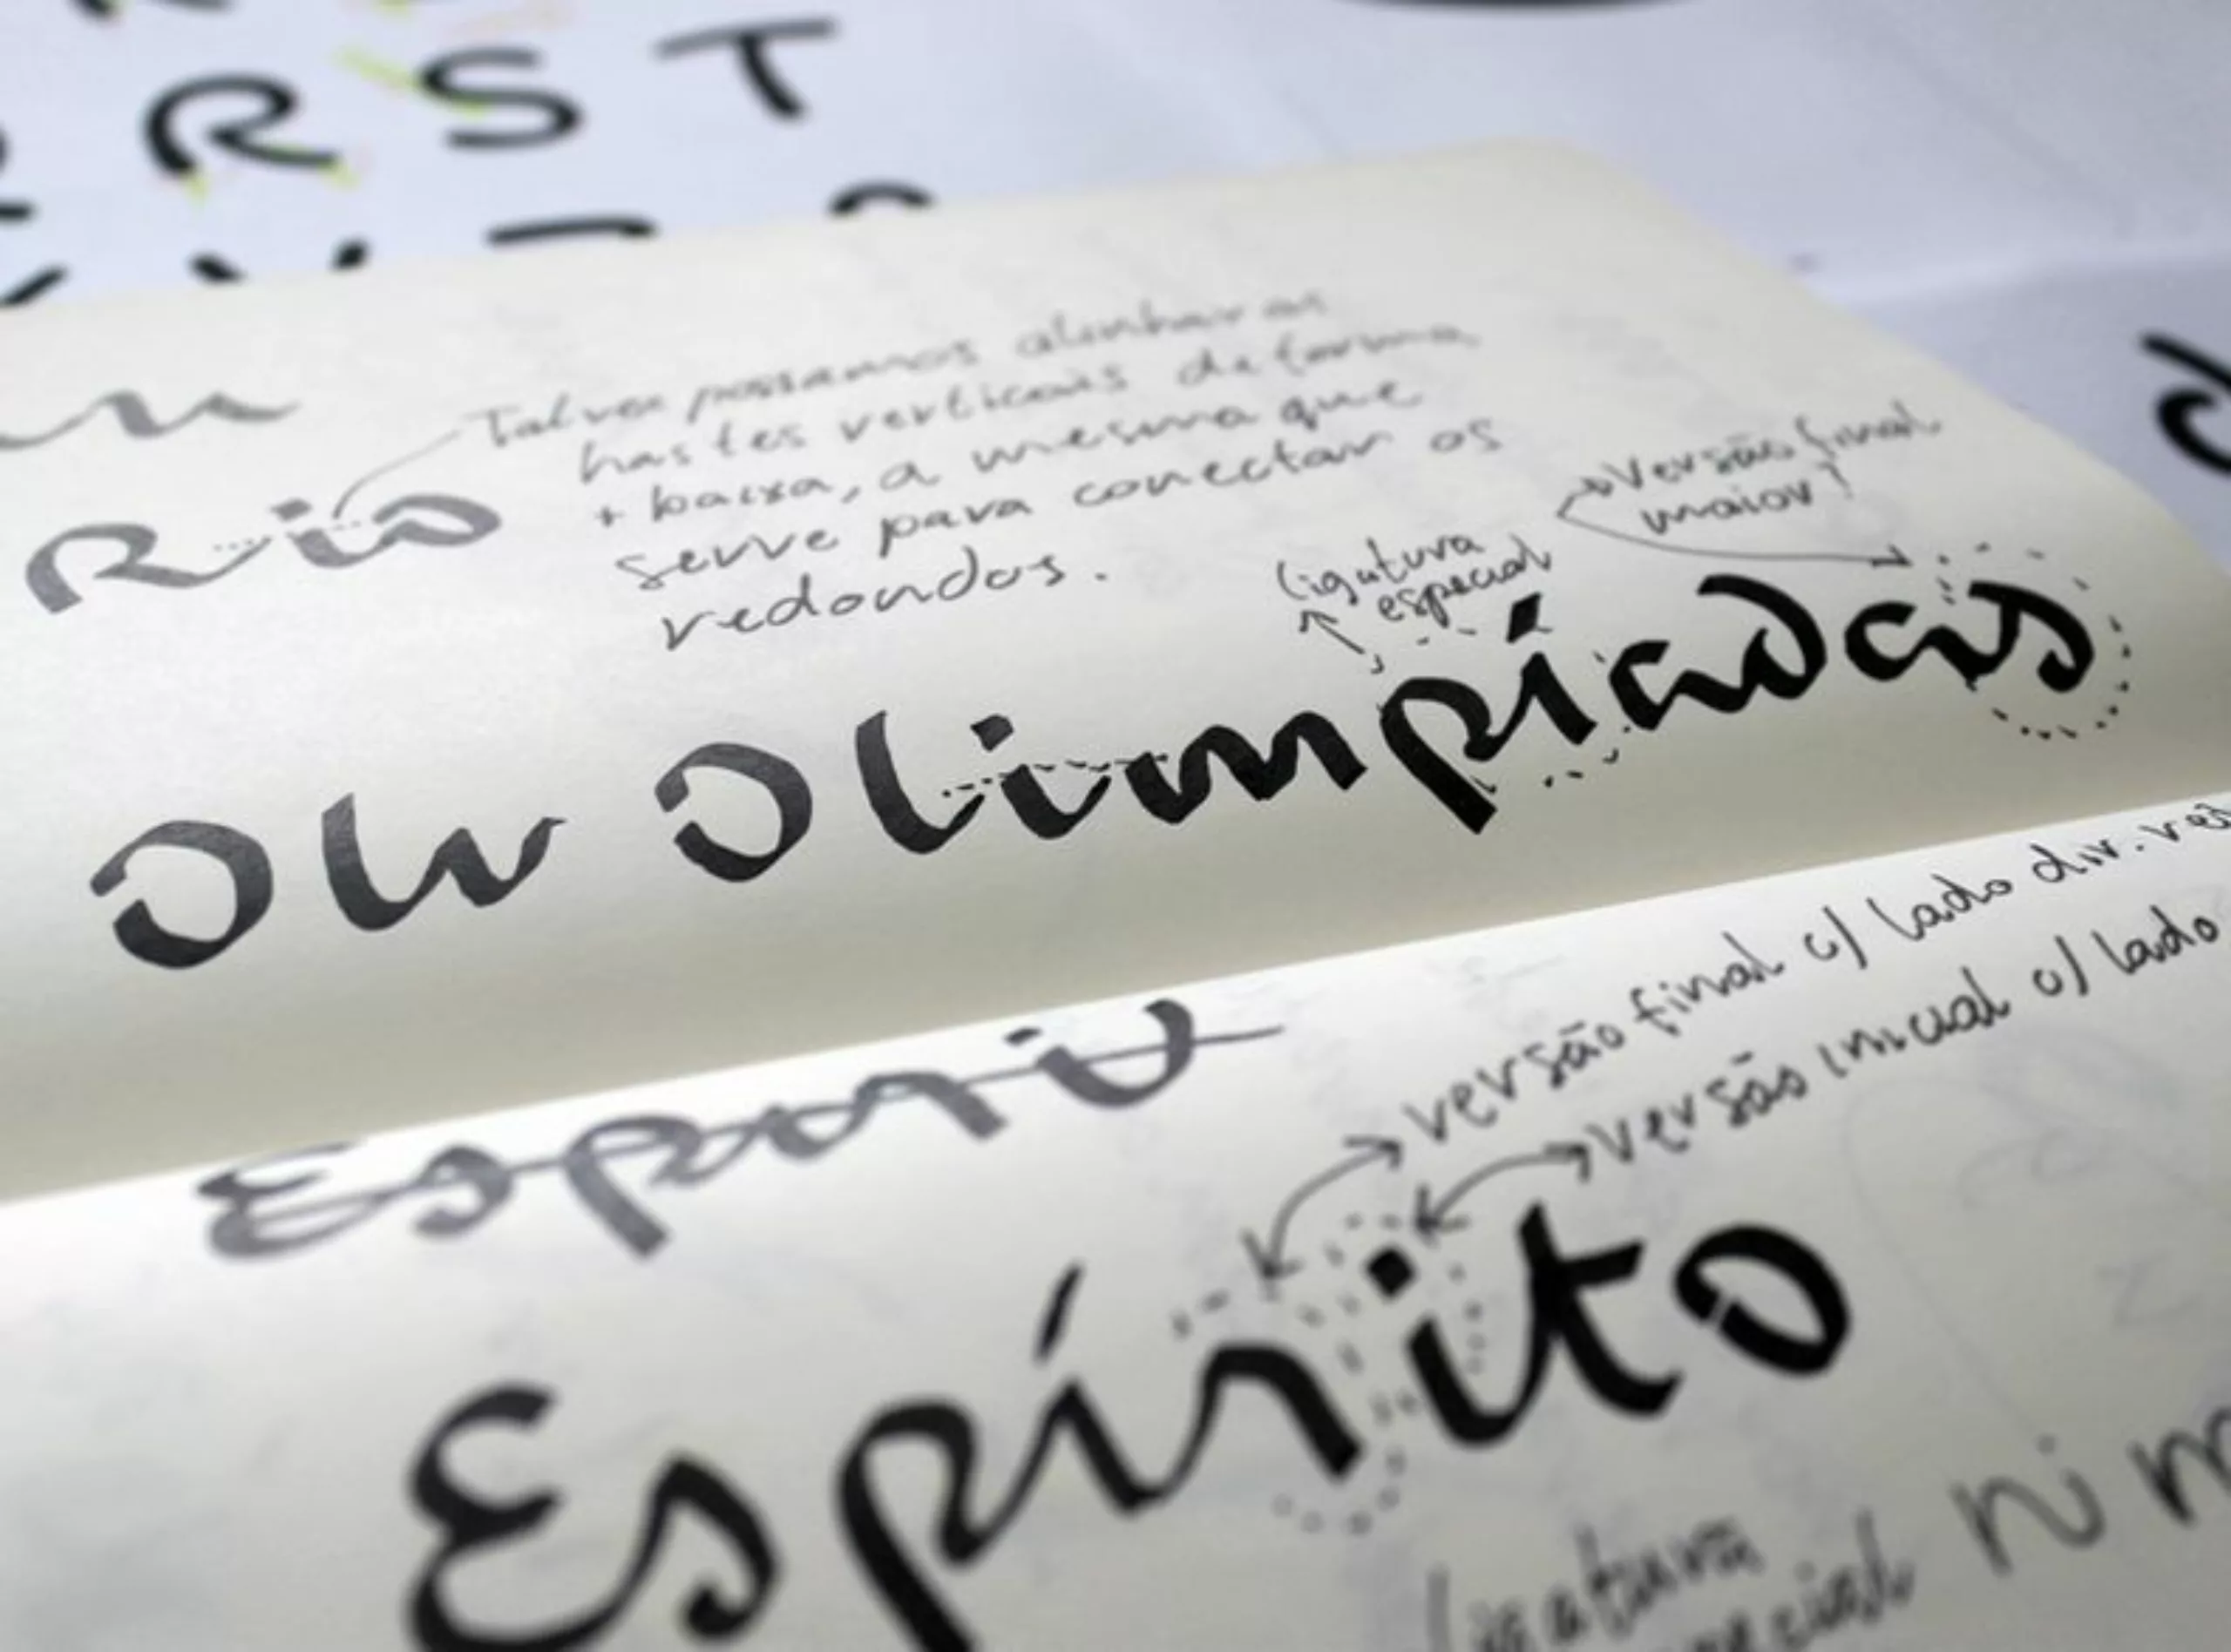 R S T
Rio
Talvez possamos alinhar as
hastes verticais de forma
+ baixa, a mesma que
serve para conectar os
redondos.
Versão final
maior!
ligatura
especial
Olimpíadas
versão final c/ lado dir.
versão inicial c/ lado
Espírito
ligatura
ni